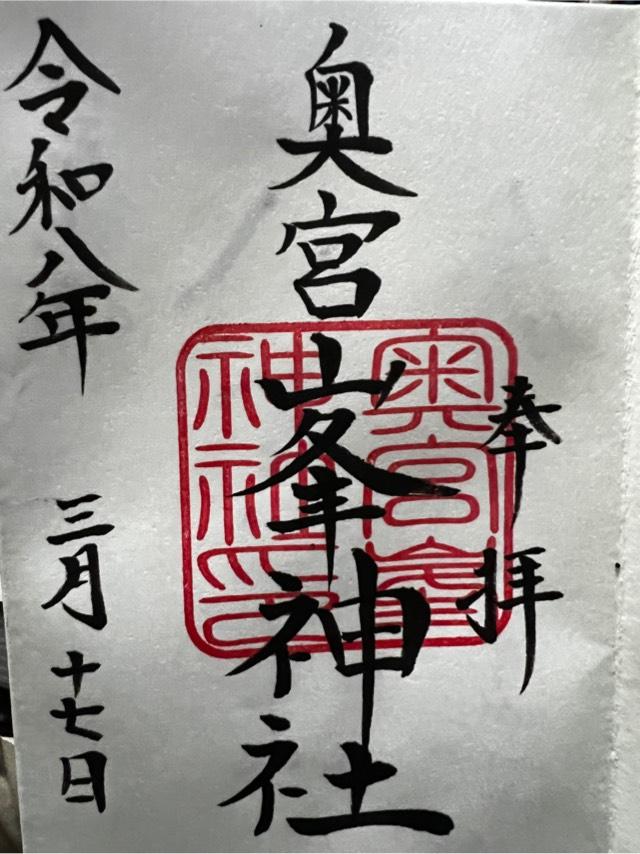 奉拝
奥宮峯神社
奥宮峯
神社印
令和八年 三月十七日